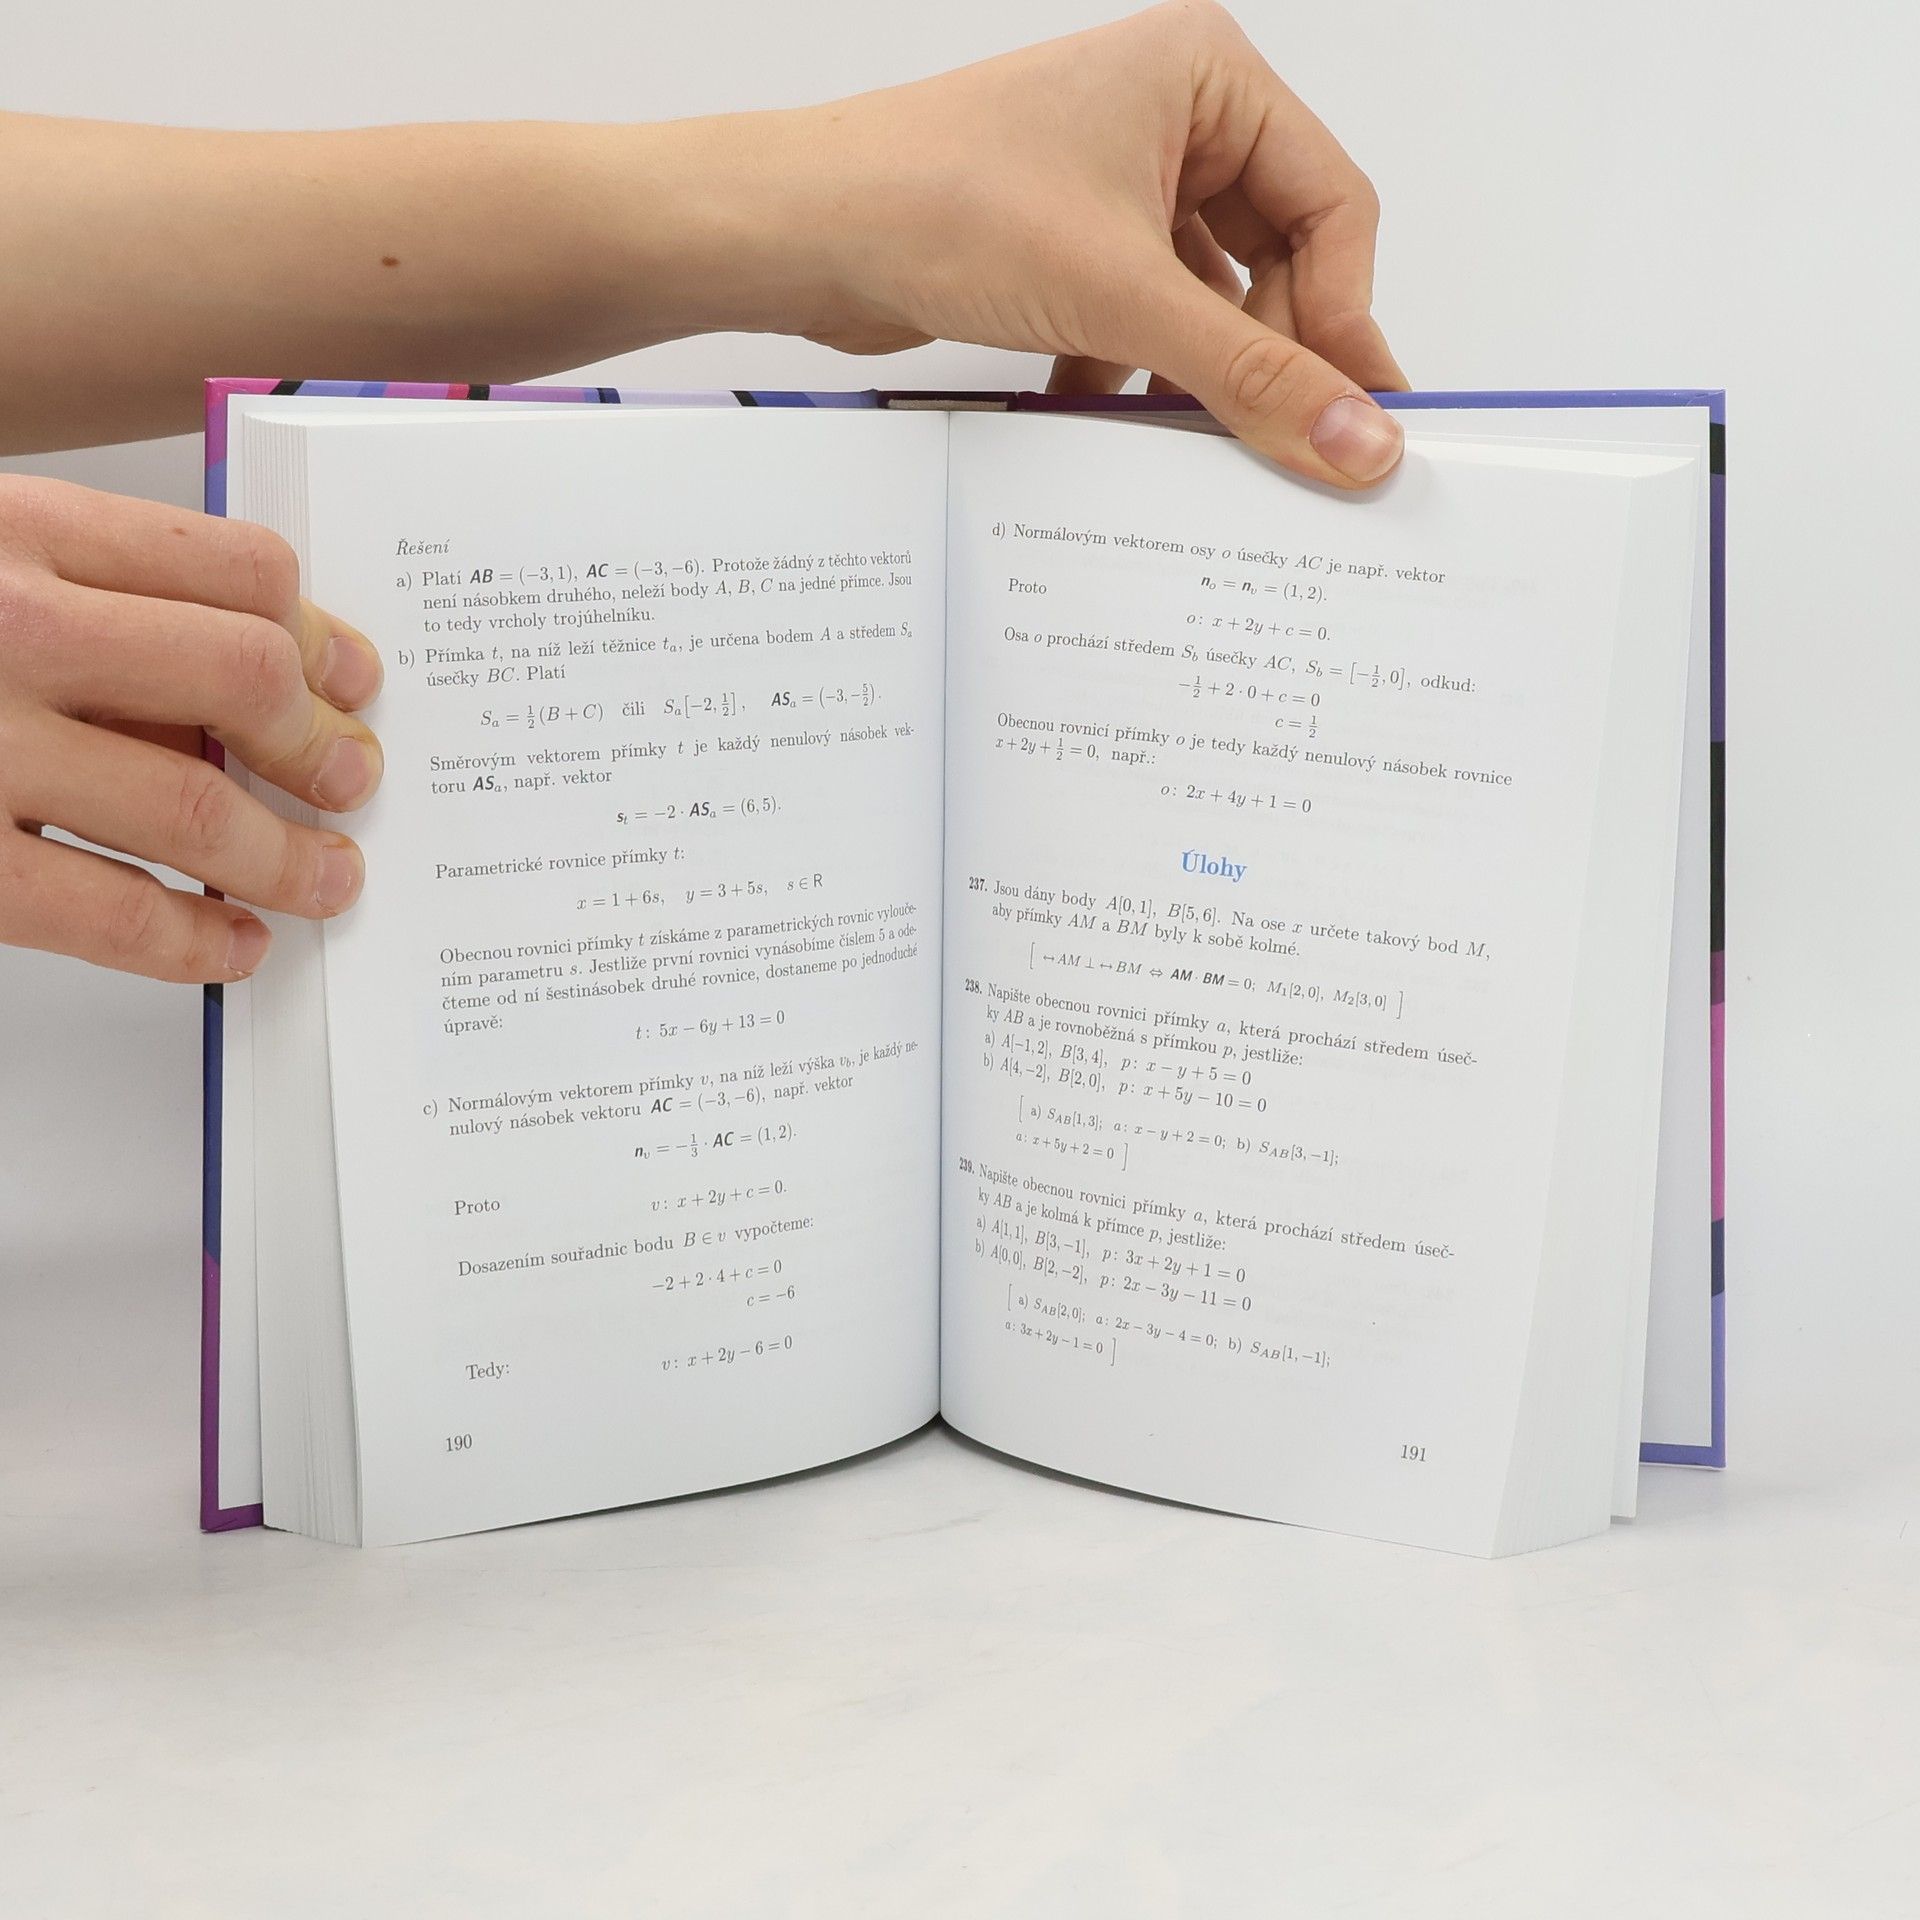 Řešení
a) Platí AB = (−3, 1), AC = (−3, −6). Protože žádný z těchto vektorů
není násobkem druhého, neleží body A, B, C na jedné přímce. Jsou
to tedy vrcholy trojúhelníku.
b) Přímka t, na níž leží těžnice tₐ, je určena bodem A a středem Sₐ
úsečky BC. Platí
Sₐ = ½ (B + C) čili Sₐ[−2, ½], ASₐ = (−3, −5/2).
Směrovým vektorem přímky t je každý nenulový násobek vek-
toru ASₐ, např. vektor
sₜ = −2 · ASₐ = (6, 5).
Parametrické rovnice přímky t:
x = 1 + 6s, y = 3 + 5s, s ∈ R
Obecnou rovnici přímky t získáme z parametrických rovnic vylouče-
ním parametru s. Jestliže první rovnici vynásobíme číslem 5 a ode-
čteme od ní šestinásobek druhé rovnice, dostaneme po jednoduché
úpravě:
t: 5x − 6y + 13 = 0
c) Normálovým vektorem přímky v, na níž leží výška v_b, je každý ne-
nulový násobek vektoru AC = (−3, −6), např. vektor
nᵥ = −1/3 · AC = (1, 2).
Proto v: x + 2y + c = 0.
Dosazením souřadnic bodu B ∈ v vypočteme:
−2 + 2 · 4 + c = 0
c = −6
Tedy: v: x + 2y − 6 = 0
190
d) Normálovým vektorem osy o úsečky AC je např. vektor
nₒ = nᵥ = (1, 2).
Proto
o: x + 2y + c = 0.
Osa o prochází středem S_b úsečky AC, S_b = [−½, 0], odkud:
−½ + 2 · 0 + c = 0
c = ½
Obecnou rovnicí přímky o je tedy každý nenulový násobek rovnice
x + 2y + ½ = 0, např.:
o: 2x + 4y + 1 = 0
Úlohy
237. Jsou dány body A[0, 1], B[5, 6]. Na ose x určete takový bod M,
aby přímky AM a BM byly k sobě kolmé.
[ ↔AM ⊥ ↔BM ⇔ AM · BM = 0; M₁[2, 0], M₂[3, 0] ]
238. Napište obecnou rovnici přímky a, která prochází středem úseč-
ky AB a je rovnoběžná s přímkou p, jestliže:
a) A[−1, 2], B[3, 4], p: x − y + 5 = 0
b) A[4, −2], B[2, 0], p: x + 5y − 10 = 0
[ a) S_AB[1, 3]; a: x − y + 2 = 0; b) S_AB[3, −1];
a: x + 5y + 2 = 0 ]
239. Napište obecnou rovnici přímky a, která prochází středem úseč-
ky AB a je kolmá k přímce p, jestliže:
a) A[1, 1], B[3, −1], p: 3x + 2y + 1 = 0
b) A[0, 0], B[2, −2], p: 2x − 3y − 11 = 0
[ a) S_AB[2, 0]; a: 2x − 3y − 4 = 0; b) S_AB[1, −1];
a: 3x + 2y − 1 = 0 ]
191